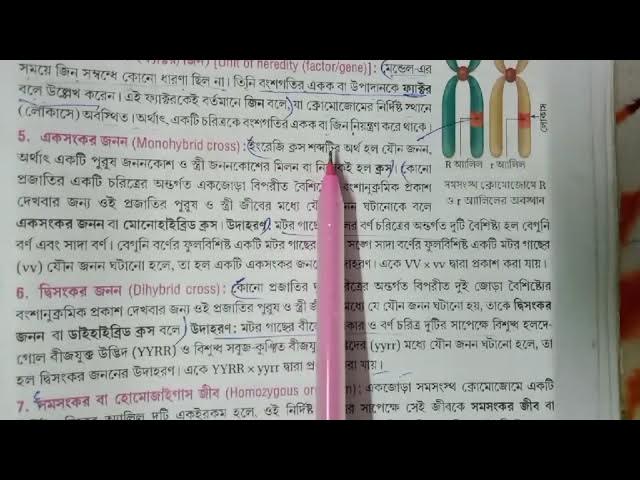 [Unit of heredity (factor/gene)] : মেন্ডেল-এর
সময়ে জিন সম্বন্ধে কোনো ধারণা ছিল না। তিনি বংশগতির একক বা উপাদানকে ফ্যাক্টর
বলে উল্লেখ করেন। এই ফ্যাক্টরকেই বর্তমানে জিন বলে, যা ক্রোমোজোমের নির্দিষ্ট স্থানে
(লোকাসে) অবস্থিত। অর্থাৎ, একটি চরিত্রকে বংশগতির একক বা জিন নিয়ন্ত্রণ করে থাকে।
5. একসংকর জনন (Monohybrid cross) : ইংরেজি ক্রস শব্দটির অর্থ হল যৌন জনন,
অর্থাৎ একটি পুরুষ জননকোশ ও স্ত্রী জননকোশের মিলন বা হল ক্রস। কোনো
প্রজাতির একটি চরিত্রের অন্তর্গত একজোড়া বিপরীত বংশানুক্রমিক প্রকাশ
দেখবার জন্য ওই প্রজাতির পুরুষ ও স্ত্রী জীবের মধ্যে জনন ঘটানোকে বলে
একসংকর জনন বা মোনোহাইব্রিড ক্রস। উদাহরণ : মটর বর্ণ চরিত্রের অন্তর্গত দুটি বৈশিষ্ট্য হল বেগুনি
বর্ণ এবং সাদা বর্ণ। বেগুনি বর্ণের ফুলবিশিষ্ট একটি মটর গাছের সঙ্গে সাদা বর্ণের ফুলবিশিষ্ট একটি মটর গাছের
(vv) যৌন জনন ঘটানো হলে, তা হল একটি একসংকর একে VV × vv দ্বারা প্রকাশ করা যায়।
6. দ্বিসংকর জনন (Dihybrid cross) : কোনো প্রজাতির অন্তর্গত বিপরীত দুই জোড়া বৈশিষ্ট্যের
বংশানুক্রমিক প্রকাশ দেখবার জন্য ওই প্রজাতির পুরুষ ও স্ত্রী মধ্যে যে যৌন জনন ঘটানো হয়, তাকে দ্বিসংকর
জনন বা ডাইহাইব্রিড ক্রস বলে। উদাহরণ : মটর গাছের ও বর্ণ চরিত্র দুটির সাপেক্ষে বিশুদ্ধ হলদে-
গোল বীজযুক্ত উদ্ভিদ (YYRR) ও বিশুদ্ধ সবুজ কুঞ্চিত (yyrr) মধ্যে যৌন জনন ঘটানো হলে, তা
হল দ্বিসংকর জননের উদাহরণ। একে YYRR × yyrr দ্বারা যায়।
7. সমসংকর বা হোমোজাইগাস জীব (Homozygous : একজোড়া সমসংস্থ ক্রোমোজোমে একটি
অ্যালিল দুটি একইরকম হলে, ওই সাপেক্ষে সেই জীবকে সমসংকর জীব বা
লোকাস
R অ্যালিল r অ্যালিল
সমসংস্থ ক্রোমোজোমে R
ও r অ্যালিলের অবস্থান